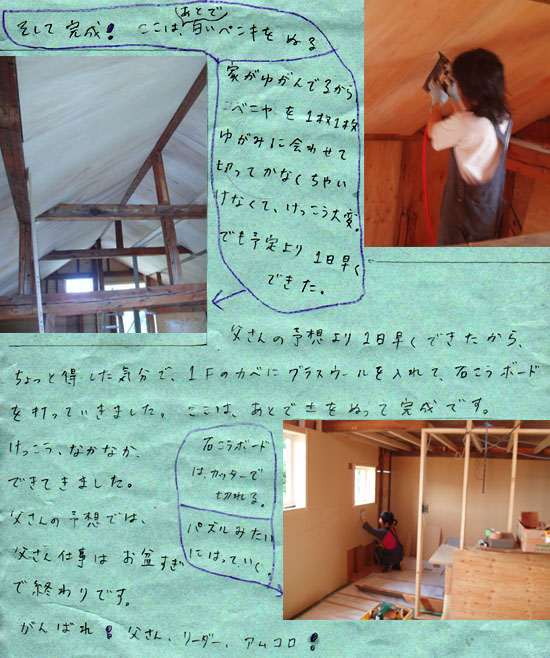 そして完成! ここは白いペンキをぬる
あとで
家がゆがんでるから
コベニヤを1枚1枚
ゆがみに会わせて
切ってかなくちゃい
けなくて、けっこう大変。
でも予定より1日早く
できた。
父さんの予想より1日早くできたから、
ちょっと得した気分で、1Fのカベにグラスウールを入れて、石こうボード
を打っていきました。ここは、あとで土をぬって完成です。
けっこう、なかなか、
できてきました。
父さんの予想では、
父さん仕事はお盆すぎ
で終わりです。
がんばれ!父さん、リーダー、アムコロ!
石こうボード
は、カッターで
切れる。
パズルみたい
にはっていく。